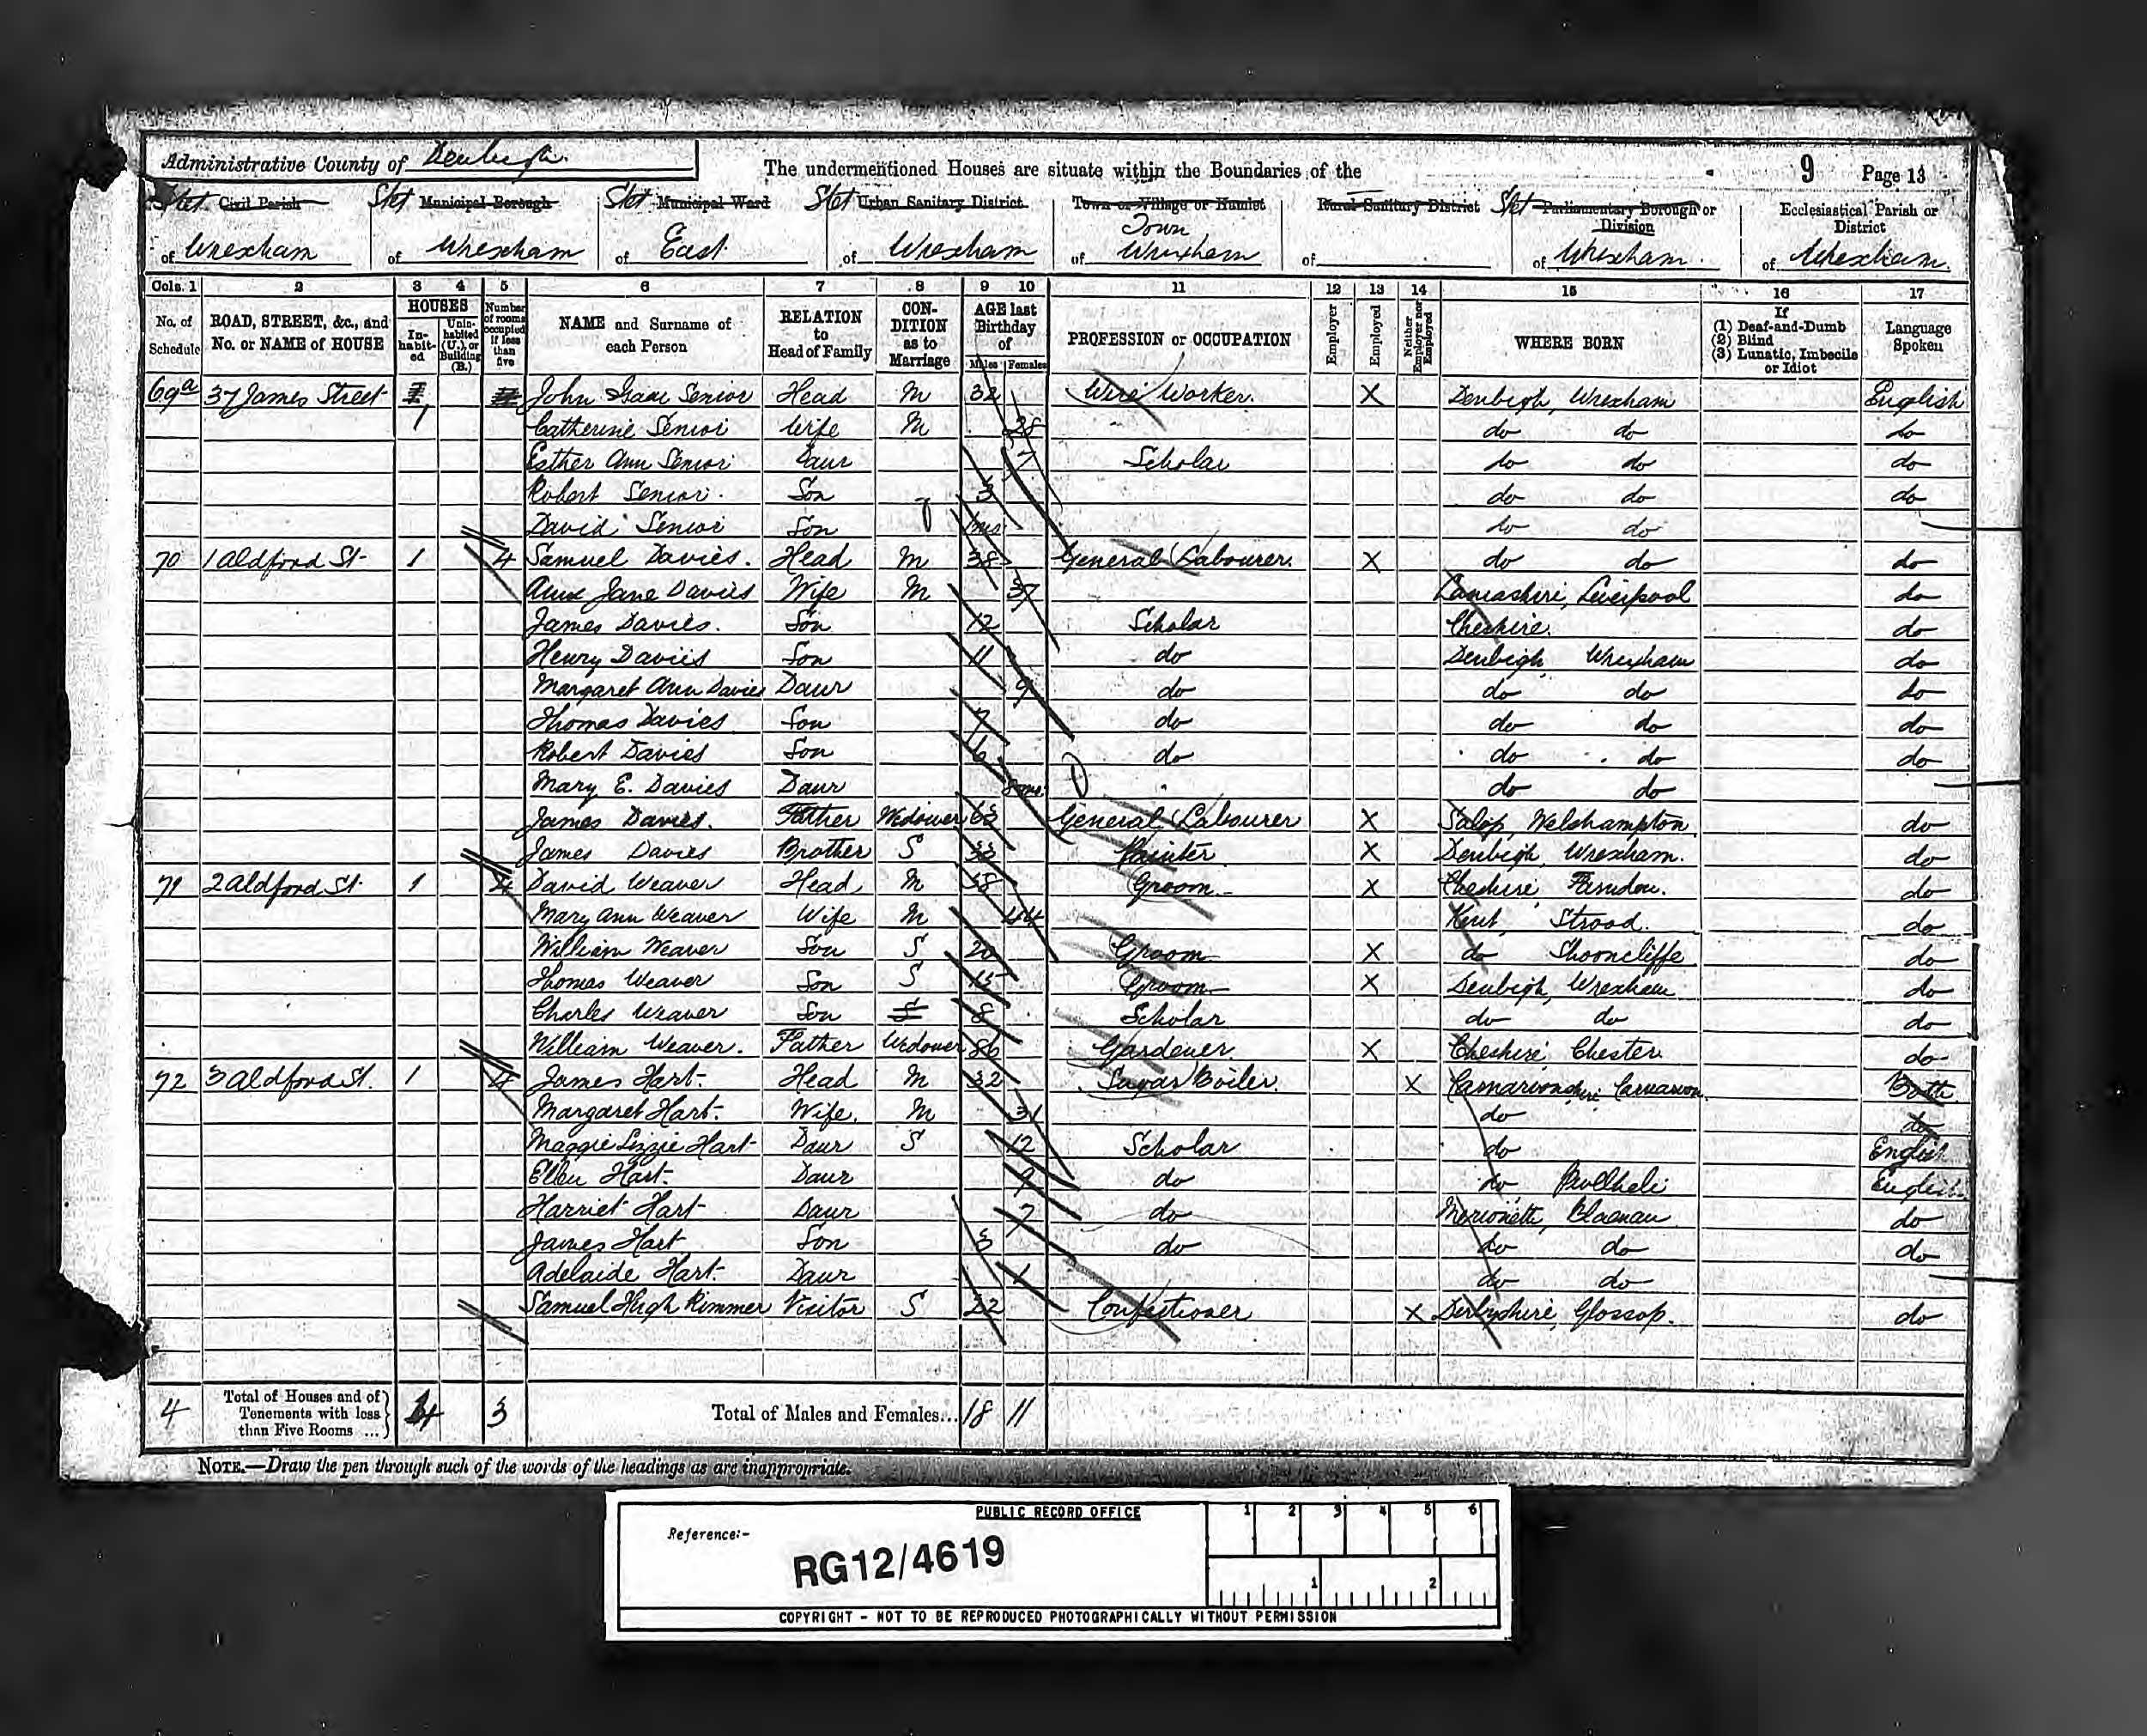 Administrative County of Denbigh
The undermentioned Houses are situate within the Boundaries of the
9 Page 13
Stet Civil Parish Stet Municipal Borough Stet Municipal Ward Stet Urban Sanitary District Town or Village or Hamlet Rural Sanitary District Stet Parliamentary Borough or Division Ecclesiastical Parish or District
Town
of Wrexham of Wrexham of East of Wrexham of Wrexham of of Wrexham of Wrexham
Cols. 1 2 3 4 5 6 7 8 9 10 11 12 13 14 15 16 17
No. of Schedule ROAD, STREET, &c., and No. or NAME of HOUSE HOUSES Inhabited Uninhabited (U.), or Building (B.) Number of rooms occupied if less than five NAME and Surname of each Person RELATION to Head of Family CONDITION as to Marriage AGE last Birthday of Males Females PROFESSION or OCCUPATION Employer Employed Neither Employer nor Employed WHERE BORN If (1) Deaf-and-Dumb (2) Blind (3) Lunatic, Imbecile or Idiot Language Spoken
69a 37 James Street 1 John Isaac Senior Head M 32 Wire Worker X Denbigh, Wrexham English
1 Catherine Senior Wife M 28 do do do
Esther Ann Senior Daur 7 Scholar do do do
Robert Senior Son 3 do do do
David Senior Son mo do do
70 1 Aldford St 1 4 Samuel Davies Head M 38 General Labourer X do do do
Ann Jane Davies Wife M 37 Lancashire, Liverpool do
James Davies Son 12 Scholar Cheshire do
Henry Davies Son 11 do Denbigh Wrexham do
Margaret Ann Davies Daur 9 do do do do
Thomas Davies Son 7 do do do do
Robert Davies Son 6 do do do do
Mary E. Davies Daur 8 mo do do
James Davies Father Widower 63 General Labourer X Salop, Welshampton do
James Davies Brother S 33 Painter X Denbigh, Wrexham do
71 2 Aldford St 1 4 David Weaver Head M 58 Groom X Cheshire Farndon do
Mary Ann Weaver Wife M 44 Kent, Strood do
William Weaver Son S 20 Groom X do Shooncliffe do
Thomas Weaver Son S 15 Groom X Denbigh, Wrexham do
Charles Weaver Son S 8 Scholar do do do
William Weaver Father Widower 86 Gardener X Cheshire Chester do
72 3 Aldford St. 1 4 James Hart Head M 32 Sugar Boiler X Carnarvonshire Carnarvon Both
Margaret Hart Wife M 31 do do
Maggie Lizzie Hart Daur S 12 Scholar do English
Ellen Hart Daur 9 do do Pwllheli English
Harriet Hart Daur 7 do Merioneth, Blaenau do
James Hart Son 3 do do do do
Adelaide Hart Daur 1 do do
Samuel Hugh Rimmer Visitor S 22 Confectioner X Derbyshire, Glossop do
4 Total of Houses and of Tenements with less than Five Rooms ... 4 3 Total of Males and Females... 18 11
NOTE.—Draw the pen through such of the words of the headings as are inappropriate.
PUBLIC RECORD OFFICE
1 2 3 4 5 6
Reference:-
RG12/4619
1 2
COPYRIGHT - NOT TO BE REPRODUCED PHOTOGRAPHICALLY WITHOUT PERMISSION